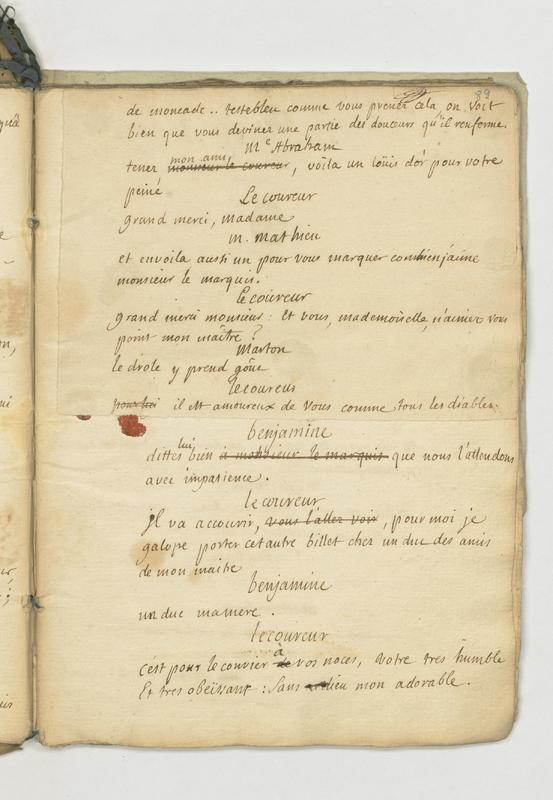 89
de moncade.. testebleu comme vous prenez cela, on voit
bien que vous devinez une partie des douceurs qu'il renferme.
Me Abraham
mon ami
tenez monsieur le coureur, voila un loüis d'or pour votre
peine
Le coureur
grand merci, madame
M. Mathieu
et envoila aussi un pour vous marquer combien j'aime
monsieur le marquis.
le coureur
grand merci monsieur : Et vous, mademoiselle, n'aimez vous
point mon maitre ?
Marton
le drole y prend goût
le coureur
pour lui il est amoureux de vous comme tous les diables.
benjamine
lui
dittes bien à monsieur le marquis que nous l'attendons
avec impatience.
le coureur
Il va accourir, vous l'allez voir, pour moi je
galope porter cet autre billet chez un duc des amis
de mon maitre
benjamine
un duc ma mere.
le coureur
à
c'est pour le convier de vos noces, votre tres humble
Et tres obeissant : Sans adieu mon adorable.